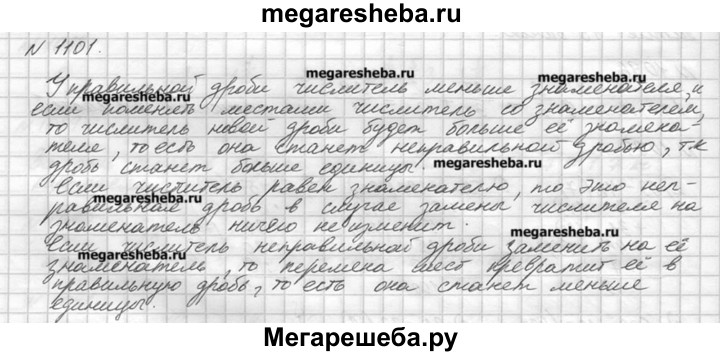 megaresheba.ru
N 1101.
megaresheba.ru megaresheba.ru
У правильной дроби числитель меньше знаменателя, и
если поменять местами числитель со знаменателем,
то числитель новой дроби будет больше её знамена-
теля, то есть она станет неправильной дробью, т.к
дробь станет больше единицы.
megaresheba.ru megaresheba.ru
Если числитель равен знаменателю, то это неп-
равильная дробь в случае замены числителя на
знаменатель ничего не изменит.
Если числитель неправильной дроби заменить на её
знаменатель, то перемена мест превратит её в
правильную дробь, то есть она станет меньше
единицы.
megaresheba.ru megaresheba.ru
Мегарешеба.ру